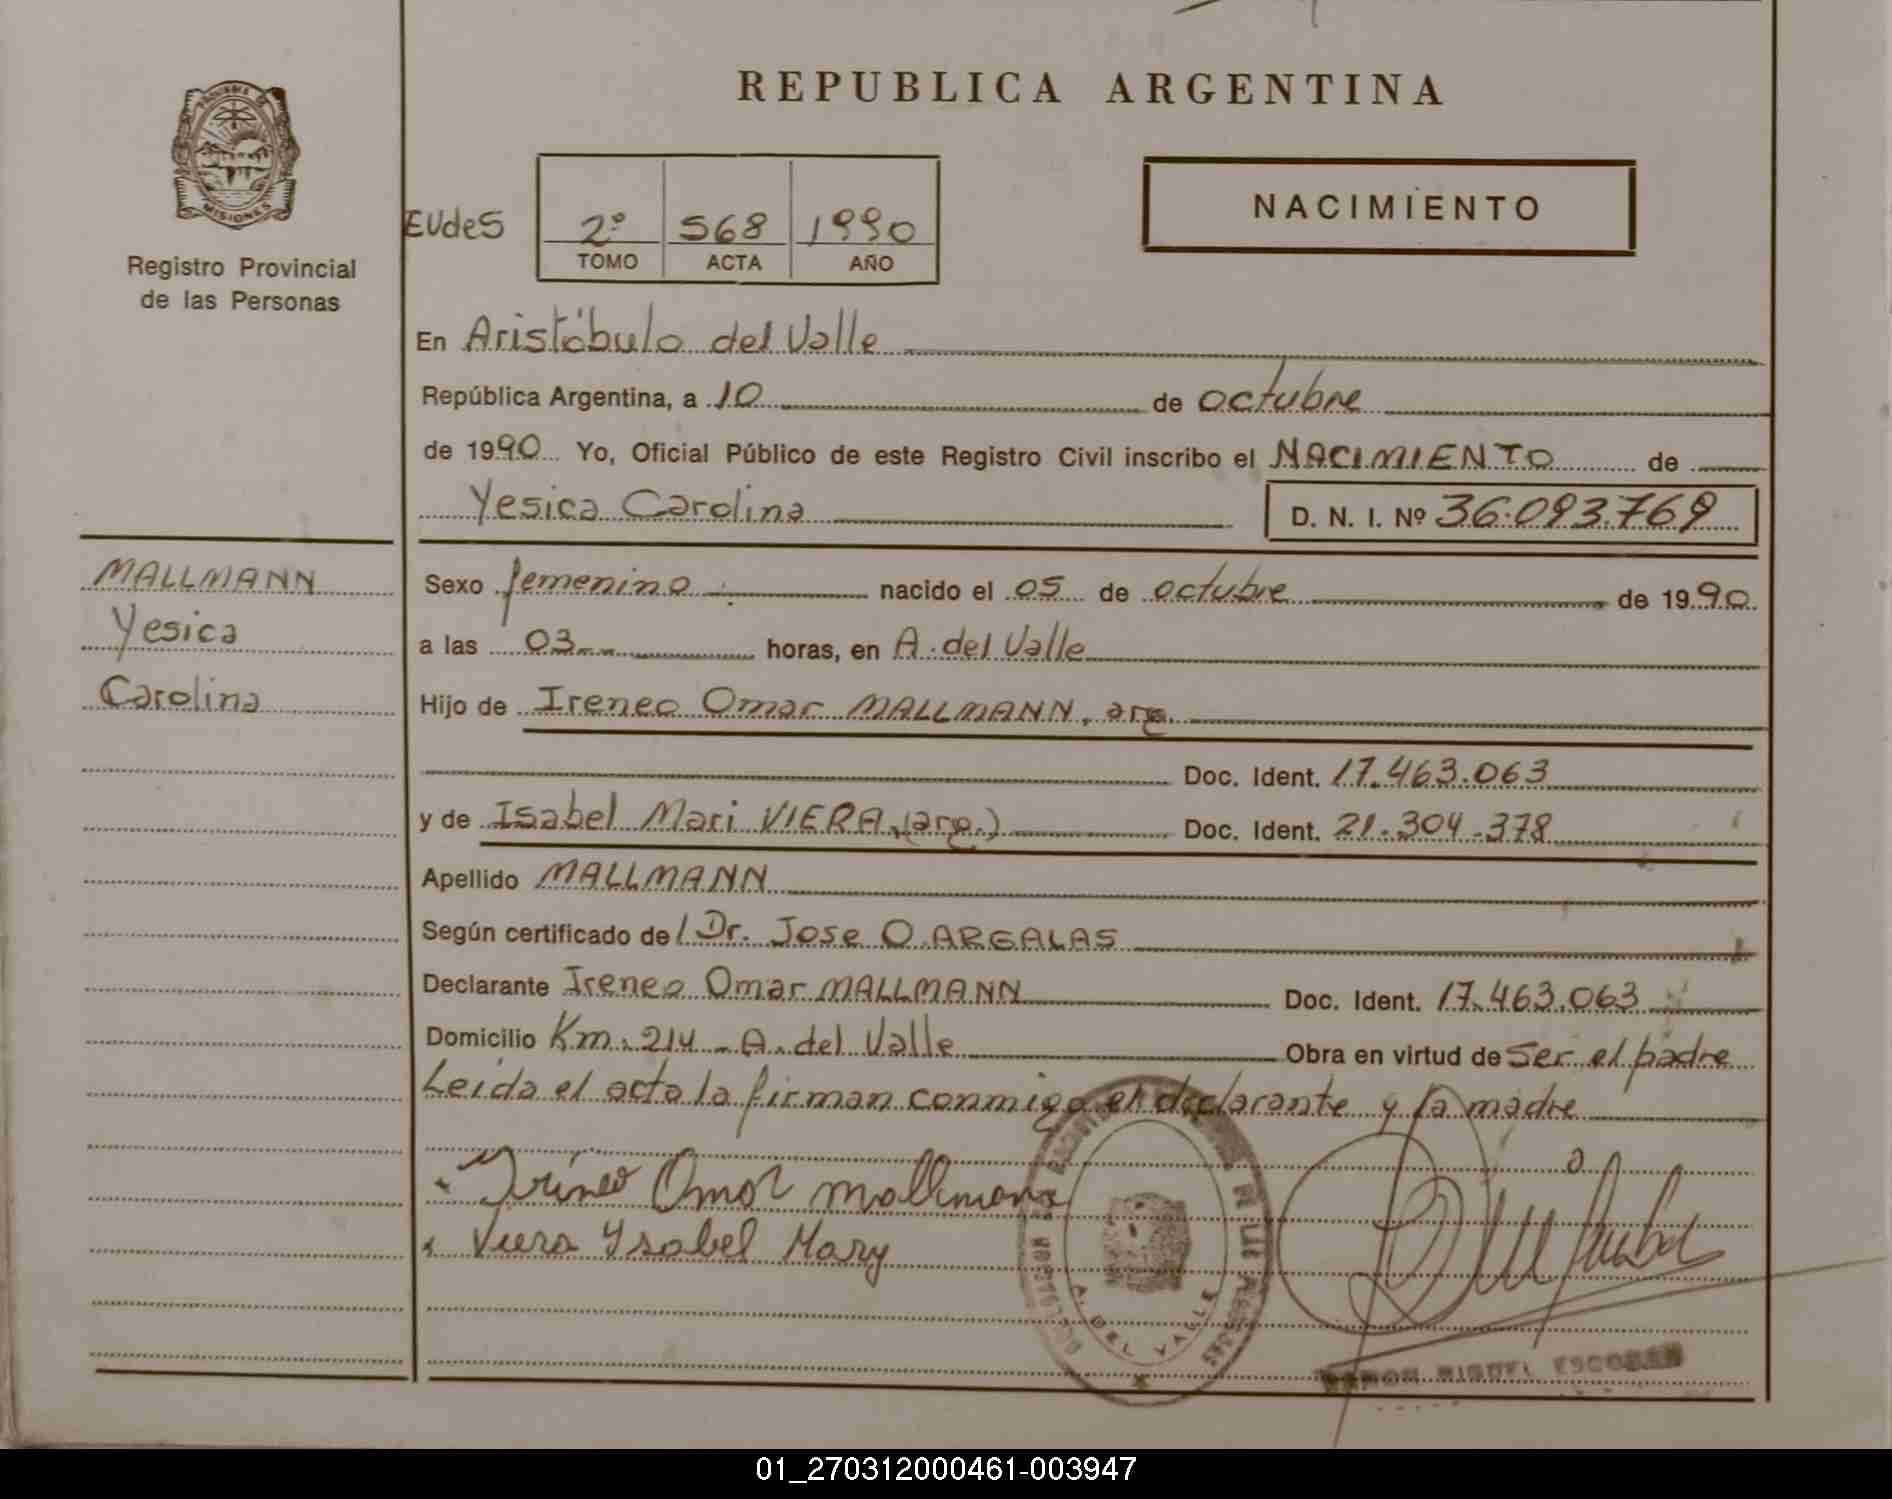 REPUBLICA ARGENTINA
PROVINCIA DE
MISIONES
Registro Provincial
de las Personas
EUdeS
2º 568 1990
TOMO ACTA AÑO
NACIMIENTO
En Aristóbulo del Valle
República Argentina, a 10 de octubre
de 1990 Yo, Oficial Público de este Registro Civil inscribo el NACIMIENTO de
Yesica Carolina D. N. I. Nº 36.093.769
MALLMANN
Yesica
Carolina
Sexo femenino nacido el 05 de octubre de 1990
a las 03 horas, en A. del Valle
Hijo de Ireneo Omar MALLMANN, arg.
Doc. Ident. 17.463.063
y de Isabel Mari VIERA, (arg.) Doc. Ident. 21.304.378
Apellido MALLMANN
Según certificado de Dr. Jose O. ARGALAS
Declarante Ireneo Omar MALLMANN Doc. Ident. 17.463.063
Domicilio Km. 214 - A. del Valle Obra en virtud de Ser el padre
Leida el acta la firman conmigo el declarante y la madre
Irineo Omar Mallmann
Viera Ysabel Mary
A. DEL VALLE
RAMON MIGUEL ESCOBAR
01_270312000461-003947